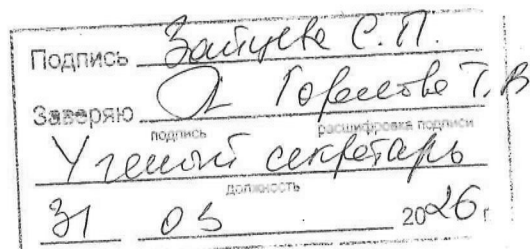 Подпись Зайцева С. П.
Заверяю Горелова Т. В
подпись расшифровка подписи
Ученый секретарь
должность
31 03 2026 г.